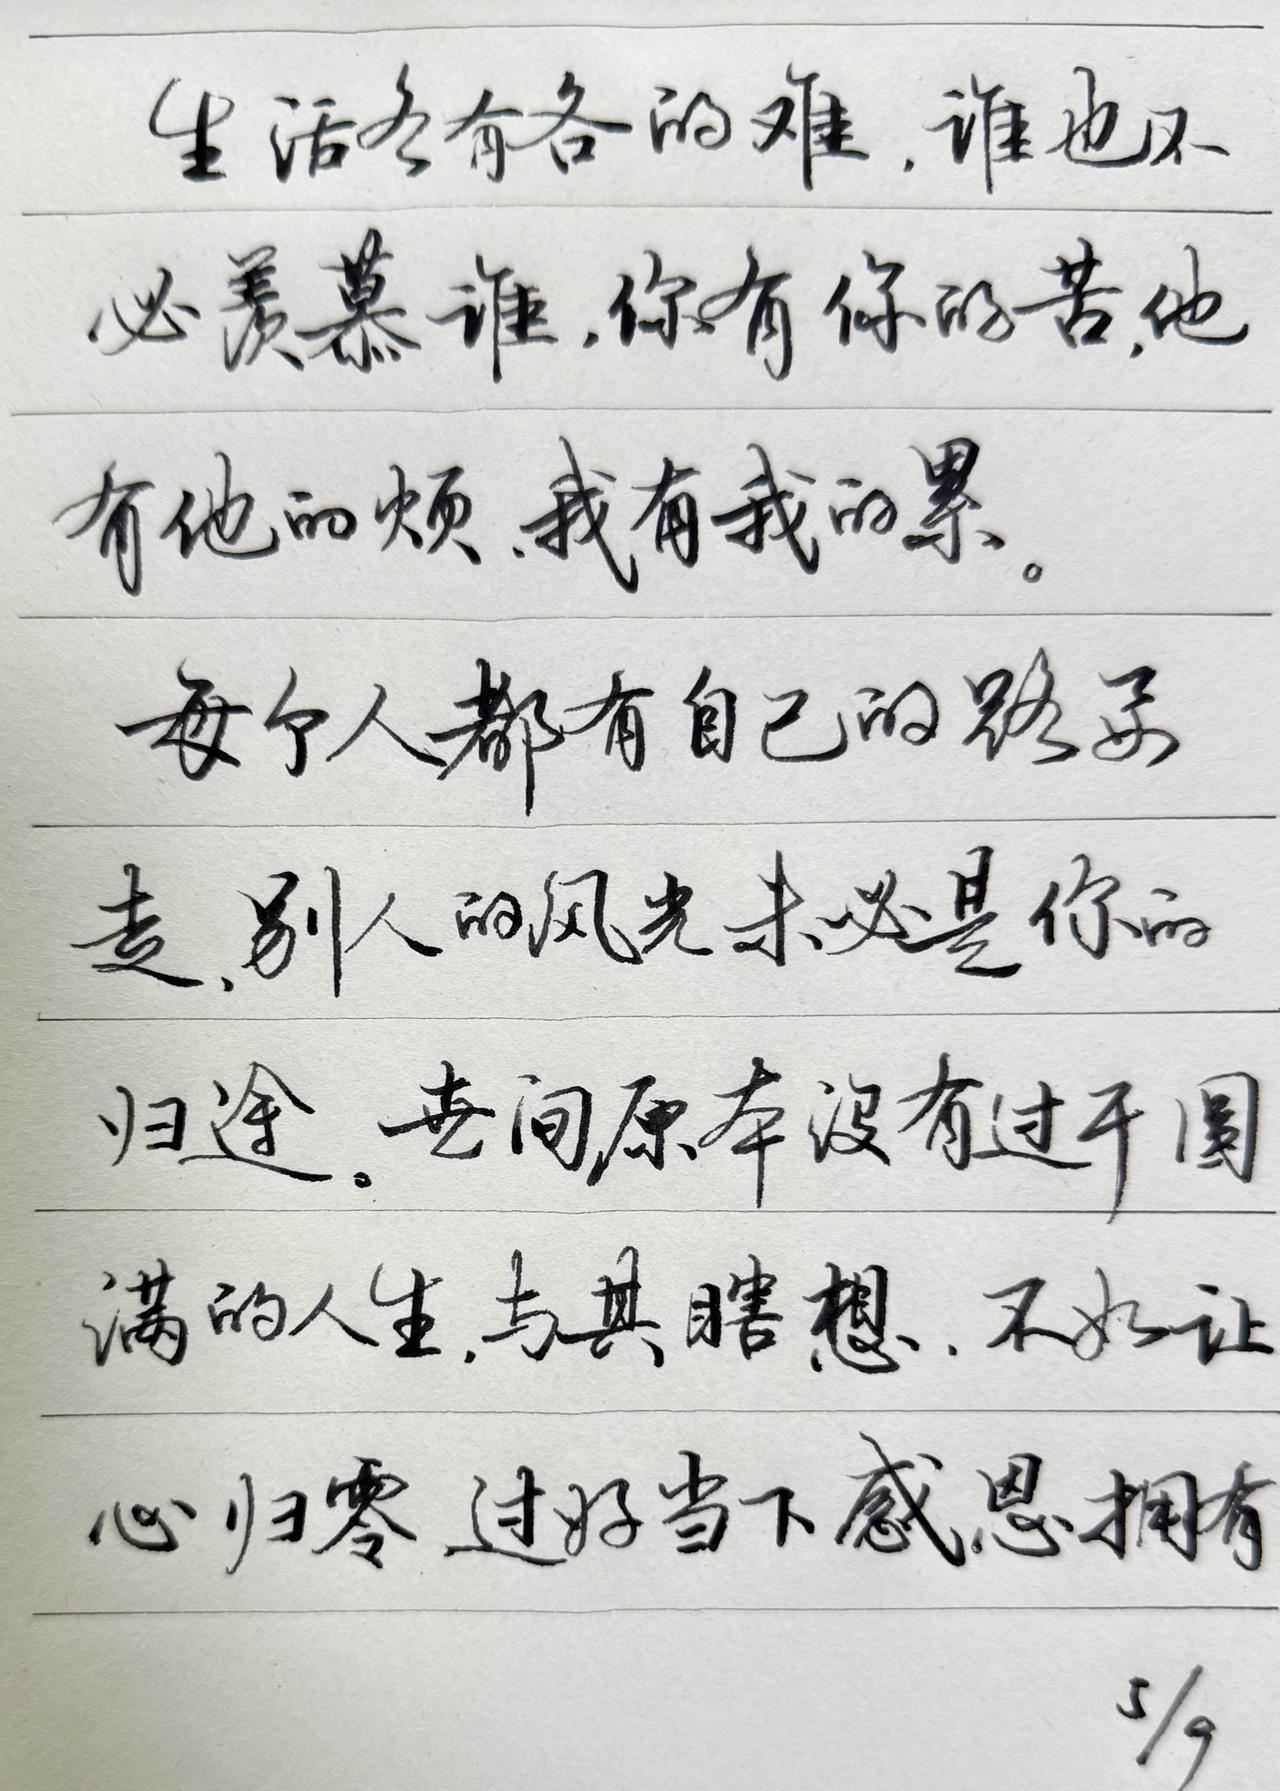 生活各有各的难，谁也不
必羡慕谁，你有你的苦，他
有他的烦，我有我的累。
每个人都有自己的路要
走，别人的风光未必是你的
归途。世间原本没有过于圆
满的人生，与其瞎想，不如让
心归零 过好当下感恩拥有
5/9